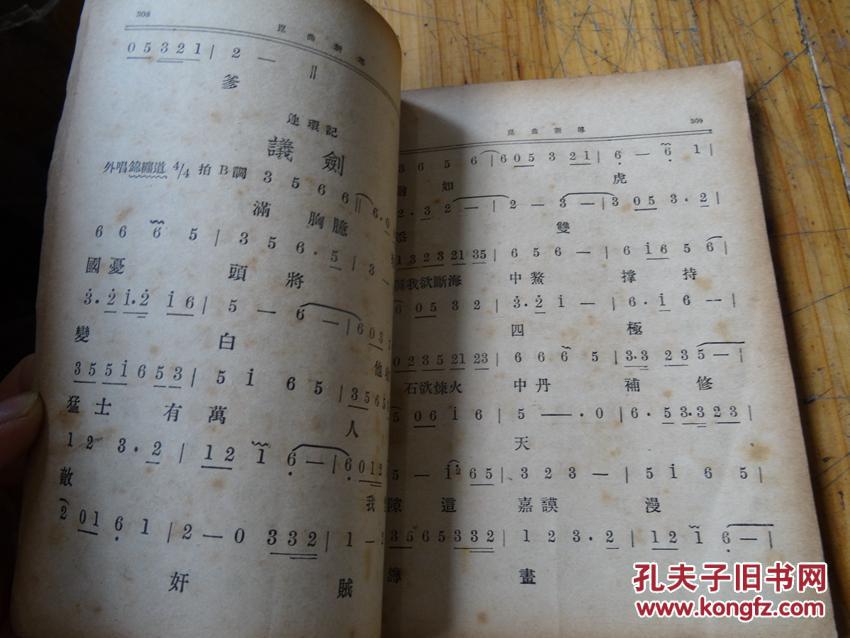 308
崑曲新導
0 5 3 2 1 | 2 — ||
爹
連環記
議劍
外唱錦纏道 4/4 拍 B調 3 5 6 6
滿胸臆
6 6 6 5 | 3 5 6 · 5 | 3 — |
國憂頭將
3 · 2 1 · 2 1 6 | 5 — 6 — | 6 0 3
變白他
3 5 5 1 6 5 3 | 5 1 6 5 | 3 5 6 5
猛士有萬人
1 2 3 · 2 | 1 2 1 6 — | 6 0 1 2
敵我
2 0 1 6 1 | 2 — 0 3 3 2 | 1 — 2
奸賊
309
崑曲新導
3 6 5 6 | 6 0 5 3 2 1 | 6 · 6 1 |
如虎
2 · 3 2 — | 2 — 3 — | 3 0 5 3 · 2 |
雙
1 3 2 3 2 1 3 5 | 6 5 6 — | 6 1 6 5 6 |
我欲斷海中鰲撐持
6 0 5 3 2 | 3 · 2 1 — | 6 · 1 6 — |
四極
0 2 3 5 2 1 2 3 | 6 6 6 5 | 3 · 3 2 3 5 — |
石欲煉火中丹補修
5 0 6 1 6 | 5 — — · 0 | 6 · 5 3 · 3 2 3 |
天
5 — 1 2 6 5 | 3 2 3 — | 5 1 6 5 |
這嘉謨漫
3 5 6 5 3 3 2 | 1 2 3 · 2 | 1 2 1 6 — |
籌畫
孔夫子旧书网
www.kongfz.com